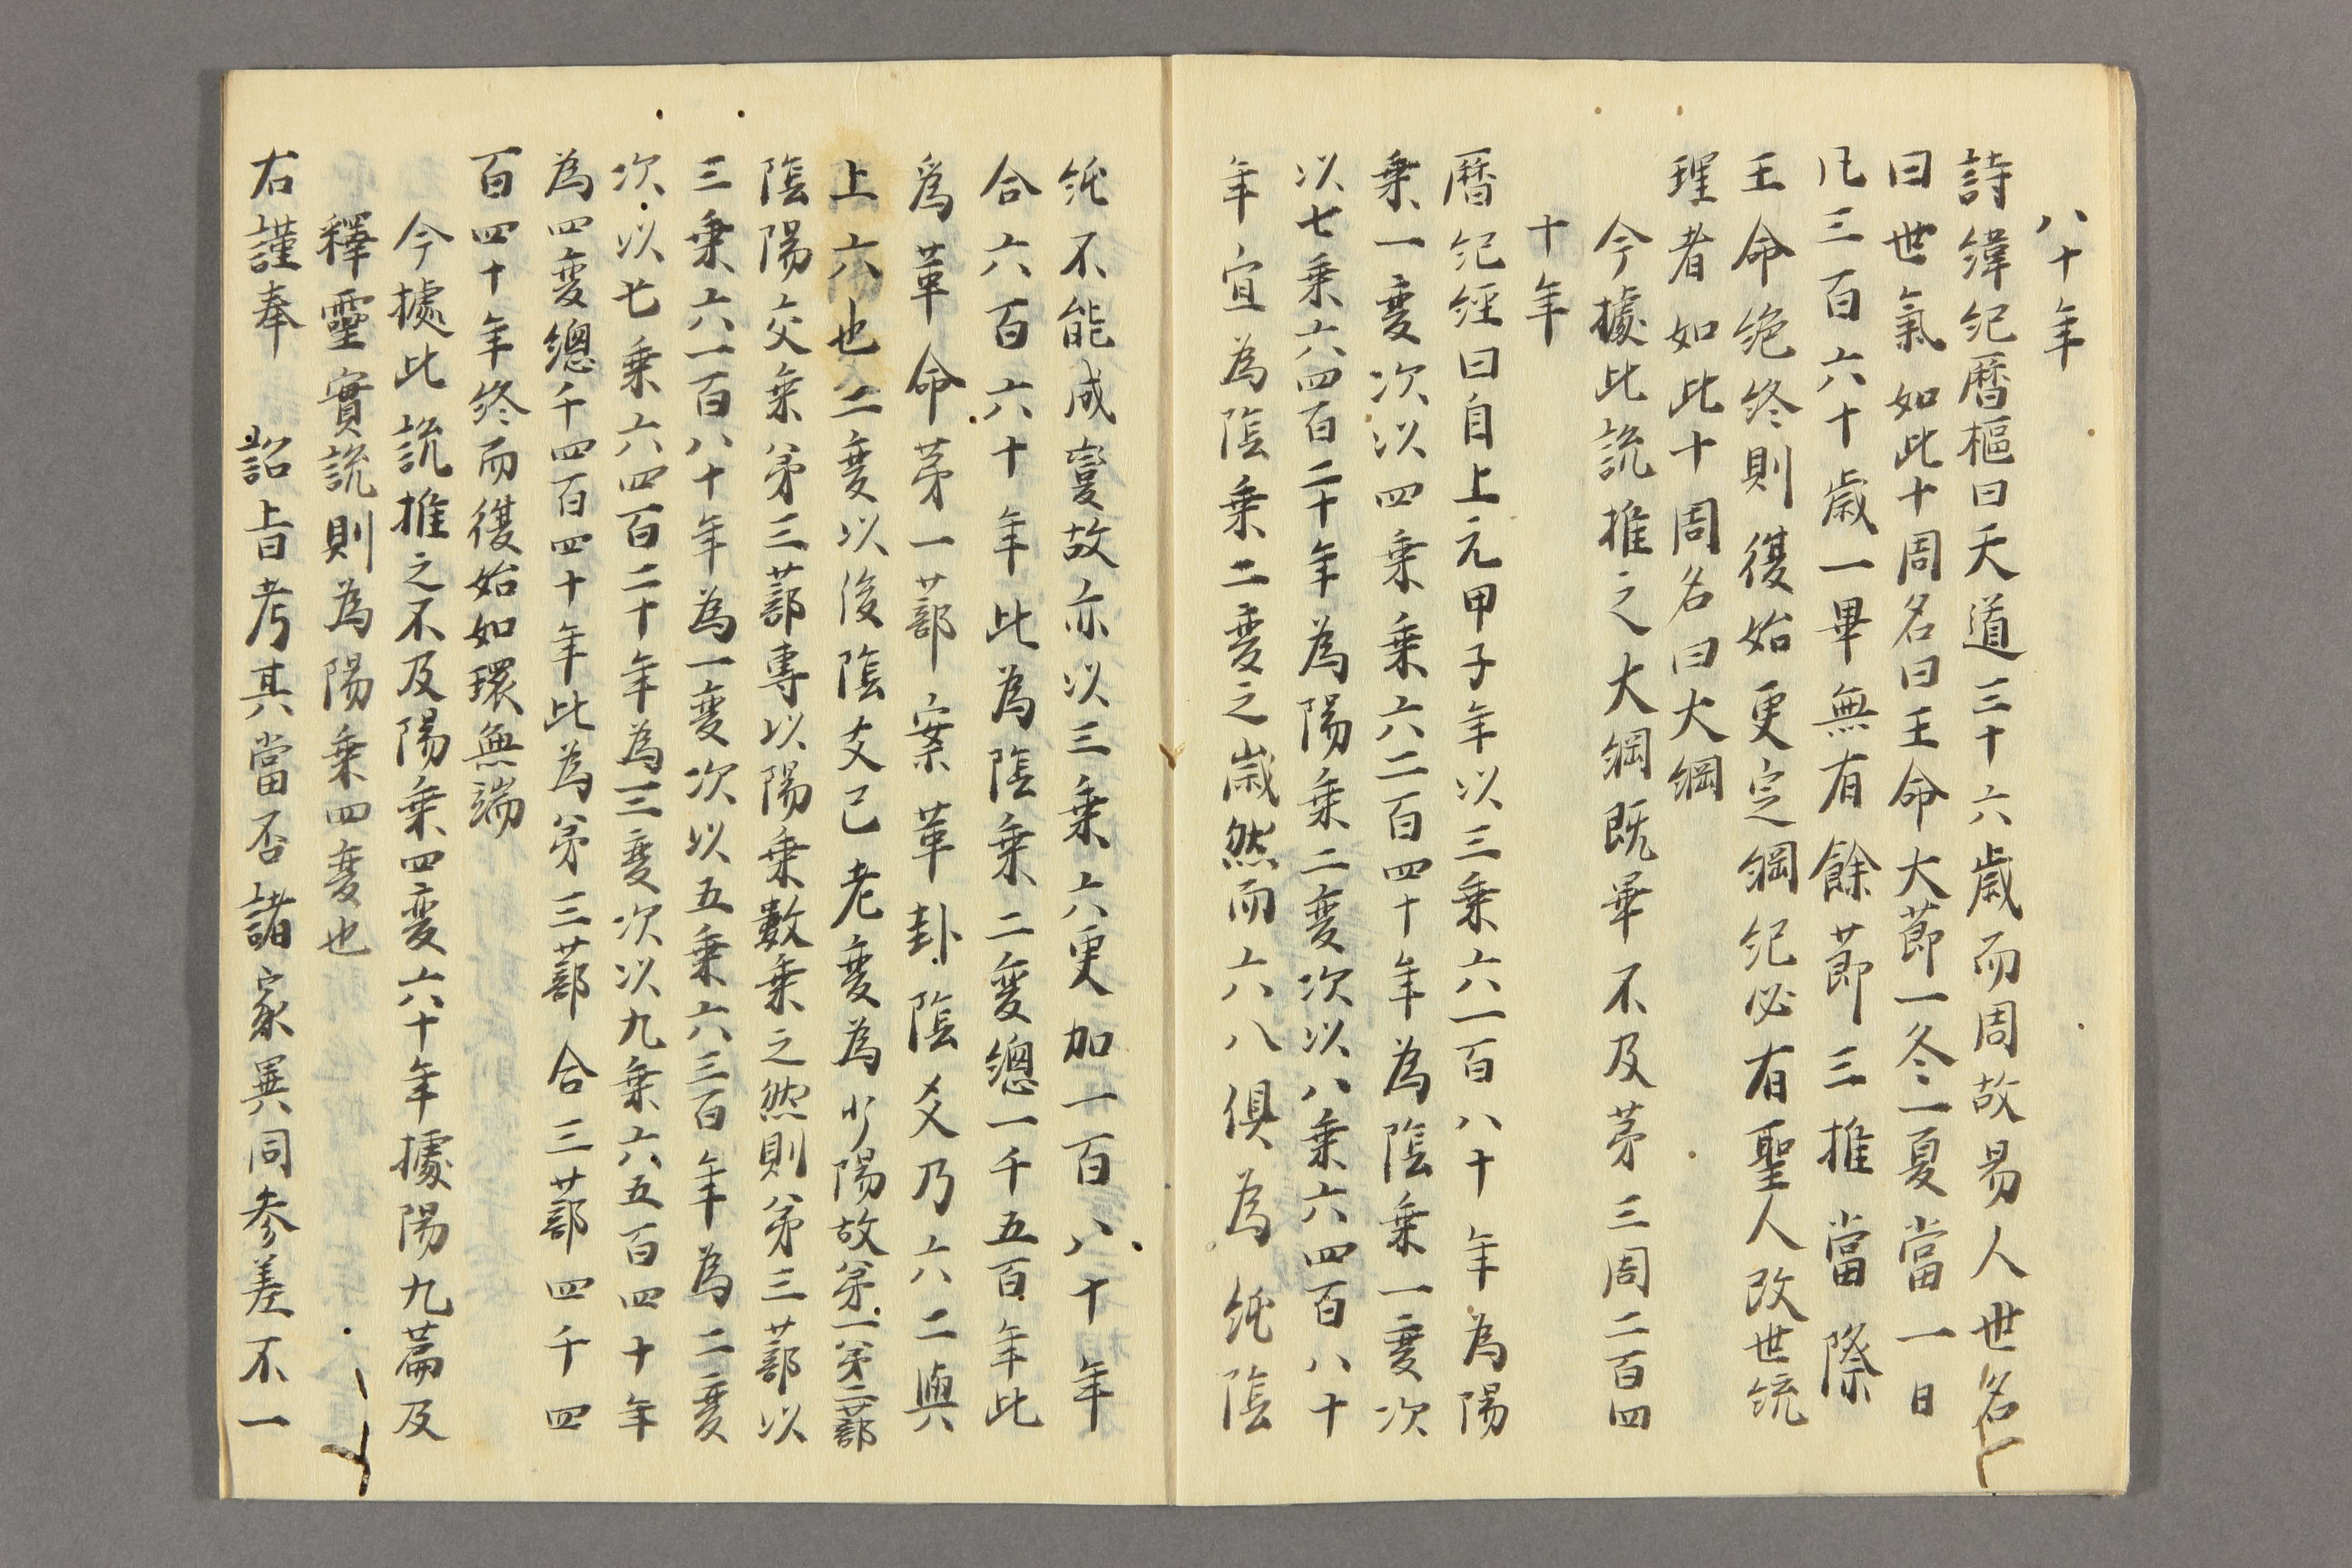 八十年
詩緯紀暦樞曰天道三十六歳而周故易人世名
曰世氣如此十周名曰王命大莭一冬一夏當一日
凡三百六十歳一畢無有餘莭三推當際
王命绝终則復始更定綱紀必有聖人改世統
理者如此十周名曰大綱
今據此説推之大綱既畢不及苐三周二百四
十年
暦紀經曰自上元甲子年以三乗六一百八十年為陽
乗一変次以四乗乗六二百四十年為陰乗一変次
以七乗六四百二十年為陽乗二変次以八乗六四百八十
年宜為陰乗二変之歳然而六八俱為純陰
純不能成変故亦以三乗六更加一百八十年
合六百六十年此為陰乗二変總一千五百年此
爲革命苐一蔀案革卦陰爻乃六二與
上六也二変以後陰爻已老変為少陽故苐一苐二蔀
陰陽交乗苐三蔀專以陽乗數乗之然則苐三蔀以
三乗六一百八十年為一変次以五乗六三百年為二変
次以七乗六四百二十年為三変次以九乗六五百四十年
為四変總千四百四十年此為苐三蔀合三蔀四千四
百四十年终而復始如環無端
今據此説推之不及陽乗四変六十年據陽九萹及
釋靈實説則為陽乗四変也
右謹奉 詔旨考其當否諸家異同参差不一